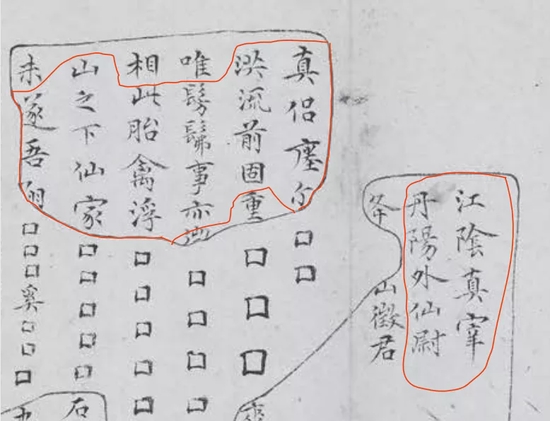 江陰真宰
丹陽外仙尉
山徵君
真侣瘞尔□□
洪流前固重□□□
唯髣髴事亦□□□□□
相此胎禽浮□□□□□□
山之下仙家□□□□□□石
未遂吾翔□□□奚□□□